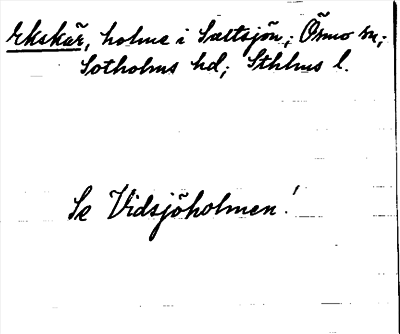 Ekskär, holme i Saltsjön; Ösmo sn;
Sotholms hd; Sthlms l.
Se Vidsjöholmen!